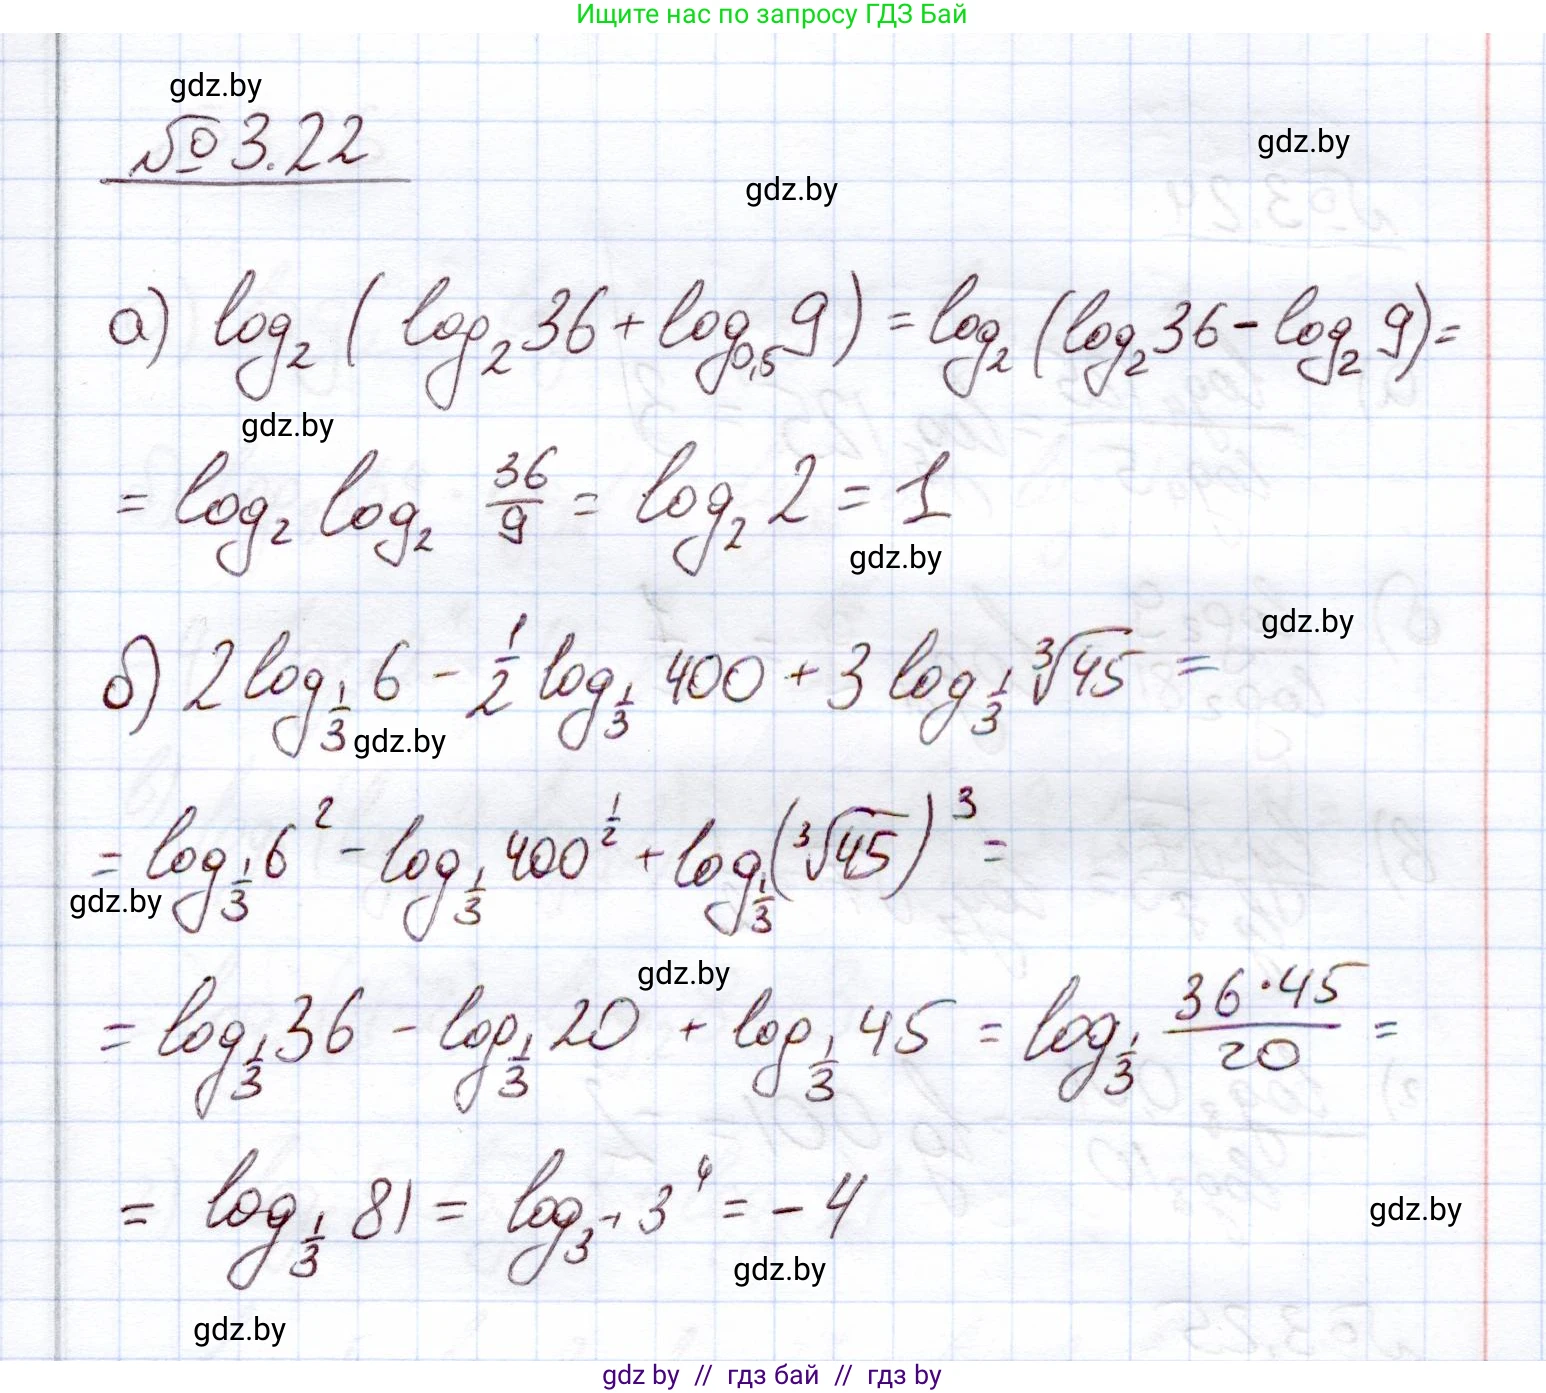 Ищите нас по запросу ГДЗ Бай
gdz.by
№ 3.22
gdz.by
gdz.by
а) log₂ ( log₂ 36 + log₀,₅ 9 ) = log₂ (log₂ 36 − log₂ 9) =
gdz.by
= log₂ log₂ 36/9 = log₂ 2 = 1
gdz.by
gdz.by
б) 2 log_{1/3} 6 − 1/2 log_{1/3} 400 + 3 log_{1/3} ∛45 =
gdz.by
= log_{1/3} 6² − log_{1/3} 400^{1/2} + log_{1/3} (∛45)³ =
gdz.by
gdz.by
= log_{1/3} 36 − log_{1/3} 20 + log_{1/3} 45 = log_{1/3} (36·45)/20 =
= log_{1/3} 81 = log_{3⁻¹} 3⁴ = −4
gdz.by
gdz.by
gdz.by
gdz by // гдз бай // гдз by